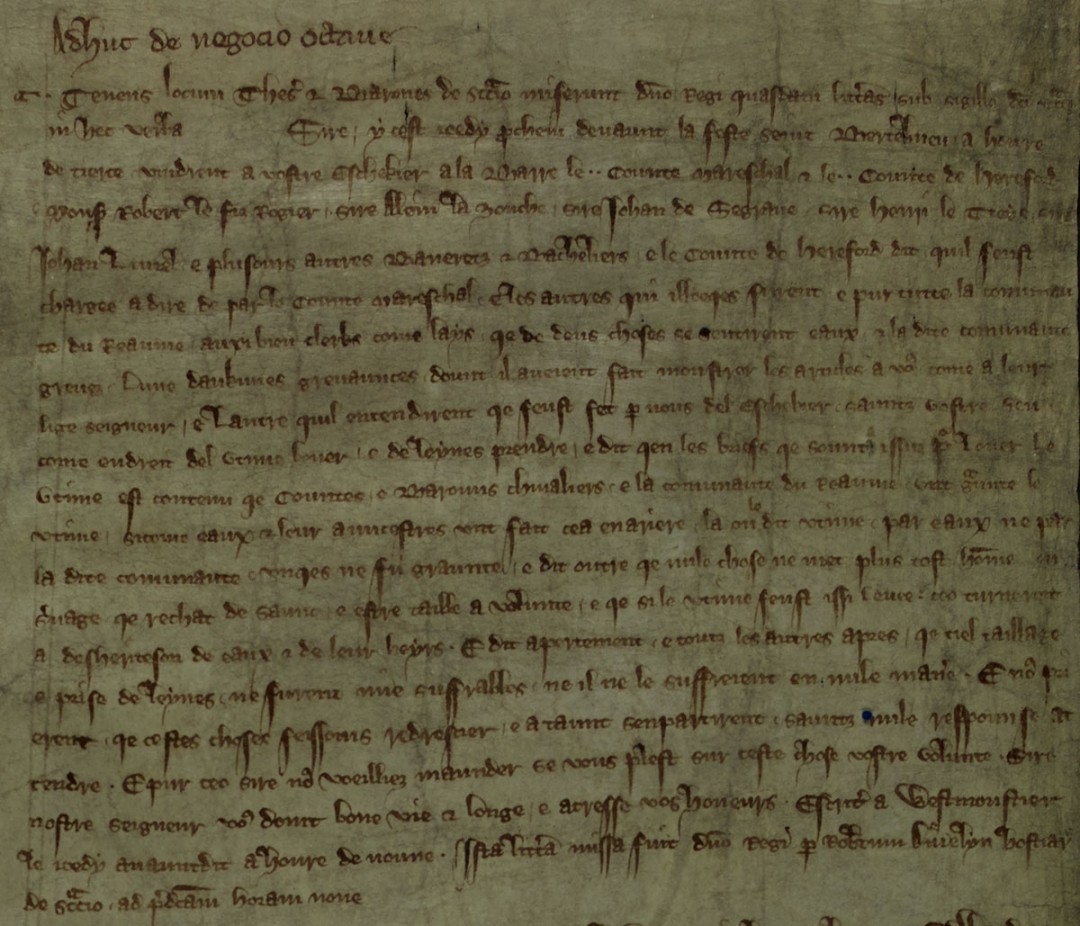 Adhuc de negocio octaue
Tenens locum Thes' & Barones de sccio miserunt dno Regi quasdam litteras sub sigillo de sccio
in hec verba Sire, y cest ioedy prchein deuaunt la feste seint Bertelmeu a houre
de tierce vindrent a vostre Eschekier a la Barre le Counte Mareschal & le Counte de Hereford
Mons' Robert le fuz Rogier, sire Alein la Zouche, sire Johan de Segraue, sire Henri le Tieys, sire
Johan Louel, e plusours autres Baneretz & Bachelers, e le Counte de Hereford dit quil feust
chargee a dire de par le Counte Mareschal, e les autres qui illeoqes furent, e pur tute la communau
te du Reaume, auxi bien clerks come lays, qe de deus choses se sentirent eaux & la dite communaute
greuez. Lune daukunes greuaunces, dount il aueient fait monstrer les articles a vo' come a leur
lige seigneur, e Lautre quil entendirent qe feust fet p nous del Eschekier, sauntz vostre seu
come endreit del vtime leuer, e de leynes prendre, e dit qen les briefs qe sount issuz p' leuer le
vtime est contenu qe Countes, e Barouns chiualiers, e la communaute du Reaume, vnt graunte le
vtime, sicome eaux & leur auncestres vnt fait cea enariere, la ou le dit vtime, par eaux ne par
la dite communaute, vnqes ne fu graunte, e dit outre qe nule chose ne met plus tost home en
s'uage, qe rechat de saunc, e estre taille a volunte, e qe si le vtime feust issi leuee, ceo turnereit
a desheriteson de eaux & de leur heyrs. E dit apertement, e touz les autres apres, qe tiel taillage
e prise de leynes, ne furent mie suffrables, ne il ne le suffreient en nule man'e. E no' pri
erent, qe cestes choses feissoms redrescier, e ataunt senpartirent, sauntz nule respounse at
tendre. E pur ceo sire no' voeilliez maunder se vous plest sur ceste chose vostre volunte. Sire
nostre seigneur vo' doint bone vie & longe, e acresse vos honeurs. Escrit a Westmoustier
le ioedy auauntdit a houre de noune. Ista littera missa fuit dno Regi p Robtum hostiar'
de sccio, ad pdcam horam none